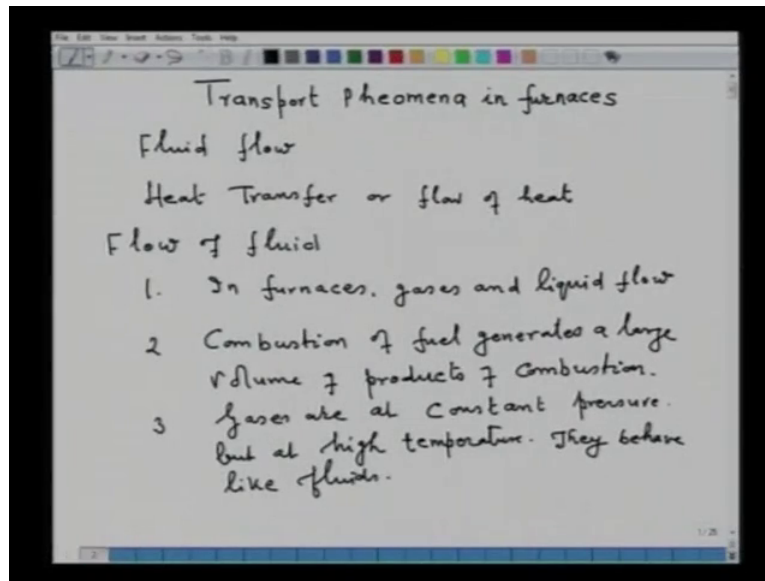 File Edit View Insert Actions Tools Help
Transport Pheomena in furnaces
Fluid flow
Heat Transfer or flow of heat
Flow of fluid
1. In furnaces, gases and liquid flow
2 Combustion of fuel generates a large
volume of products of combustion.
3 Gases are at constant pressure.
but at high temperature. They behave
like fluids.
1/25
2